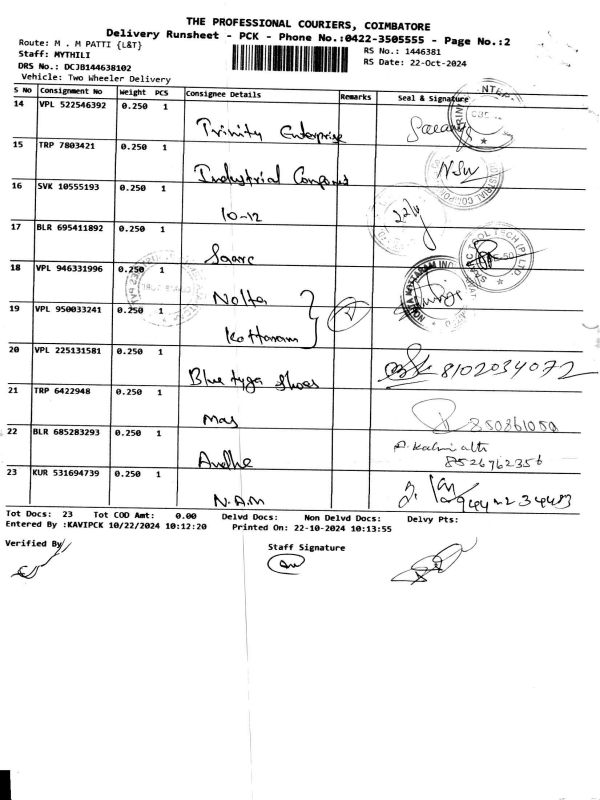 THE PROFESSIONAL COURIERS, COIMBATORE
Delivery Runsheet - PCK - Phone No.:0422-3505555 - Page No.:2
Route: M . M PATTI {L&T}
RS No.: 1446381
Staff: MYTHILI
RS Date: 22-Oct-2024
DRS No.: DCJB1446438102
Vehicle: Two Wheeler Delivery
S No Consignment No Weight PCS Consignee Details Remarks Seal & Signature
14 VPL 522546392 0.250 1 Trinity Enterprise
15 TRP 7803421 0.250 1 Industrial
16 SVK 10555193 0.250 1 10-12 22/10
17 BLR 695411892 0.250 1 Saarc
18 VPL 946331996 0.250 1 Nolta
19 VPL 950033241 0.250 1 Kottaram
20 VPL 225131581 0.250 1 Blue tyga Shoes 8102034072
21 TRP 6422948 0.250 1 Mas
22 BLR 685283293 0.250 1 8526762356
23 KUR 531694739 0.250 1 N.A.M
Tot Docs: 23 Tot COD Amt: 0.00 Delvd Docs: Non Delvd Docs: Delvy Pts:
Entered By :KAVIPCK 10/22/2024 10:12:20 Printed On: 22-10-2024 10:13:55
Verified By
Staff Signature